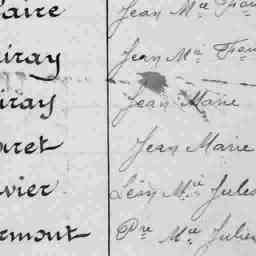 aire Jean Mie Fran
iray Jean Mie Fran
iray Jean Marie
uret Jean Marie
vier Léon Mie Jules
rmont Pre Mie Julien